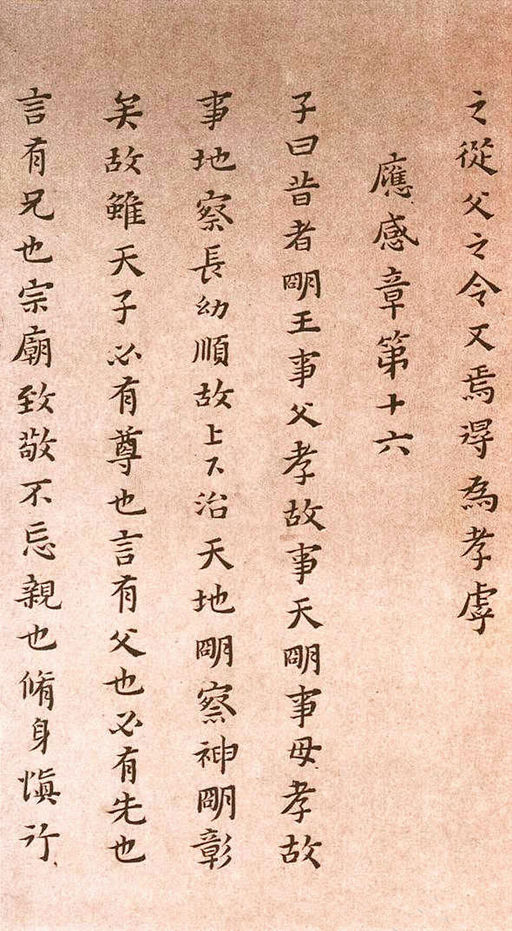 之從父之令又焉得為孝虖
應感章第十六
子曰昔者朙王事父孝故事天朙事母孝故
事地察長幼順故上下治天地朙察神朙彰
矣故雖天子必有尊也言有父也必有先也
言有兄也宗廟致敬不忘親也脩身愼行